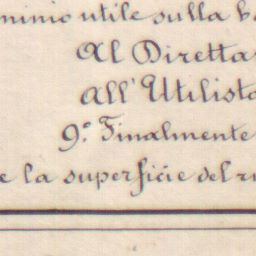 minio utile sulla
Al Diretta
all'Utilista
9.° Finalmente
e la superficie del